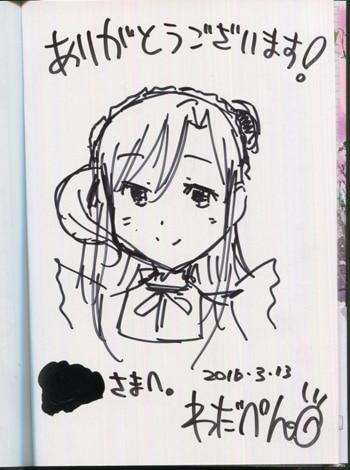 ありがとうございます!
さまへ。
2016.3.13
わだぺん。